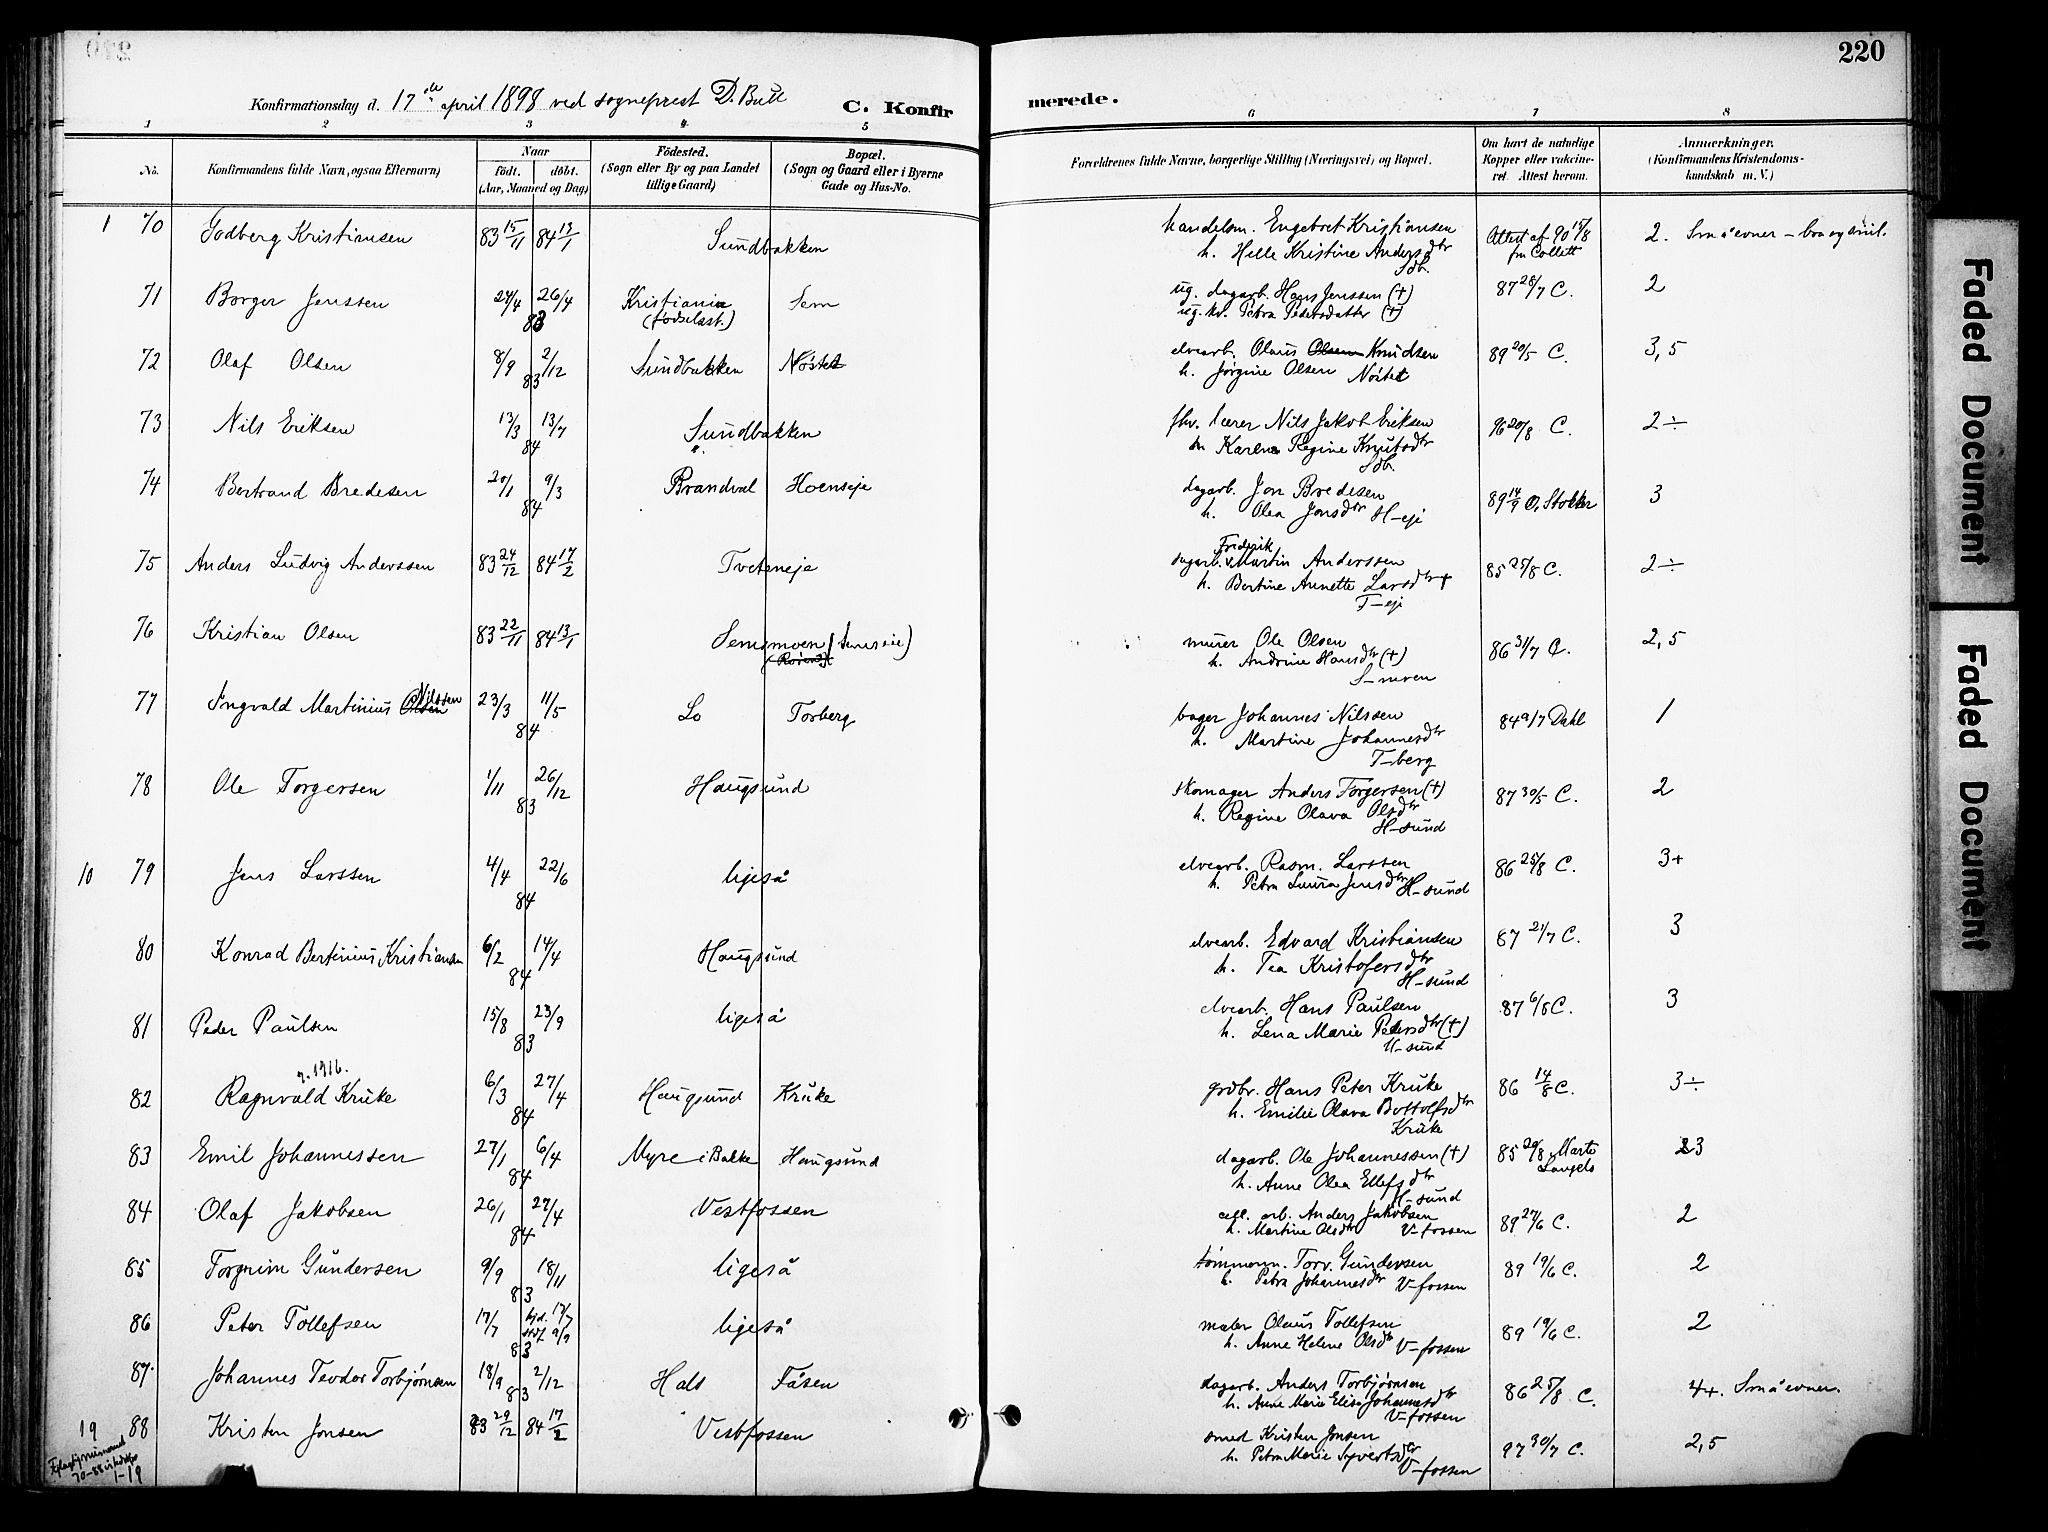 220
Konfirmationsdag d. 17de april 1898 ved sogneprest D. Bull C. Konfirmerede.
1 2 3 4 5 6 7 8
No. Konfirmandens fulde Navn, ogsaa Efternavn) Naar født. døbt. (Aar, Maaned og Dag) Fødested. (Sogn eller By og paa Landet tillige Gaard) Bopæl. (Sogn og Gaard eller i Byerne Gade og Hus-No. Forældrenes fulde Navne, borgerlige Stilling (Næringsvei) og Bopæl. Om havt de naturlige Kopper eller vakcineret. Attest herom. Anmærkninger. (Konfirmandens Kristendomskundskab m. V.)
1 70 Godberg Kristiansen 83 15/11 84 13/1 Sundbakken handelsm. Engebret Kristiansen Attest af 90 15/8 2. Små evner – bra og snil.
h. Helle Kristine Andersdtr fra Collett
Sdb.
71 Borger Jenssen 24/4 26/4 83 Kristiania Sem ug. dagarb. Hans Jenssen (+) 87 28/7 C. 2
(fødselsst.) ug. kv. Petra Pedersdatter (+)
72 Olaf Olsen 8/9 2/12 83 Sundbakken Nøstet elvearb. Olaus Olsen Knudsen 89 20/5 C. 3,5
h. Jørgine Olsen Nøstet
73 Nils Eriksen 13/3 13/7 84 Sundbakken fhv. lærer Nils Jakob Eriksen 96 20/8 C. 2÷
h. Karen Regine Knutsdtr
Sdb.
74 Bertrand Bredesen 20/1 9/3 84 Brandval Hoenseje dagarb. Jon Bredesen 89 14/9 O. Stokker 3
h. Olea Jonsdtr H–eje
75 Anders Ludvig Anderssen 83 24/12 84 17/2 Tveteneje dagarb. Fredrik Martin Anderssen 85 25/8 C. 2÷
h. Bertine Annette Larsdtr +
T–eje
76 Kristian Olsen 83 22/11 84 13/1 Semsmoen (Semseie) murer Ole Olsen 86 31/7 C. 2,5
h. Andrine Hansdtr (+)
S–moen
77 Ingvald Martinius Olsen Nilssen 23/3 11/5 84 Lo Torberg bager Johannes Nilssen 84 9/7 Dahl 1
h. Martine Johannesdtr
T–berg
78 Ole Torgersen 1/11 26/12 83 Haugsund skomager Anders Torgersen (+) 87 30/5 C. 2
h. Regine Olava Olsdtr
H–sund
10 79 Jens Larssen 4/4 22/6 84 ligeså elvearb. Rasm. Larssen 86 25/8 C. 3+
h. Petra Laura Jensdtr H–sund
80 Konrad Bertinius Kristiansen 6/2 14/4 84 Haugsund elvearb. Edvard Kristiansen 87 21/7 C. 3
h. Tea Kristofersdtr
H–sund
81 Peder Paulsen 15/8 23/9 83 ligeså elvearb. Hans Paulsen 87 6/8 C. 3
h. Lena Marie Pedersdtr (+)
H–sund
82 Ragnvald Kruke 6/3 27/4 84 Haugsund Kruke grdbr. Hans Peter Kruke 86 14/8 C. 3÷
h. Emilie Olava Bottolfsdtr
Kruke
83 Emil Johannessen 27/1 6/4 84 Myre i Bakke Haugsund dagarb. Ole Johannessen (+) 85 29/8 3
h. Anne Olea Ellefsdtr
H–sund
84 Olaf Jakobsen 26/1 27/4 84 Vestfossen cell. arb. Anders Jakobsen 89 27/6 C. 2
h. Martine Olsdtr V–fossen
85 Torgrim Gundersen 9/9 18/11 83 ligeså tømmerm. Torv. Gundersen 89 19/6 C. 2
h. Petra Johannesdtr V–fossen
86 Peter Tollefsen 17/7 hjd. 17/7 stdf. 9/9 83 ligeså maler Olaus Tollefsen 89 19/6 C. 2
h. Anne Helene Olsdtr V–fossen
87. Johannes Teodor Torbjørnsen 18/9 2/12 83 Hals Fåsen dagarb. Anders Torbjørnsen 86 25/8 C. 4+. Små evner.
h. Anne Marie Elise Johannesdtr
V–fossen
19 88 Kristen Jonsen 83 29/12 84 17/2 Vestfossen smed Kristen Jonsen 97 30/7 C. 2,5
h. Petra Marie Syvertsdtr
V–fossen
70–88
1–19
Faded Document
Faded Document